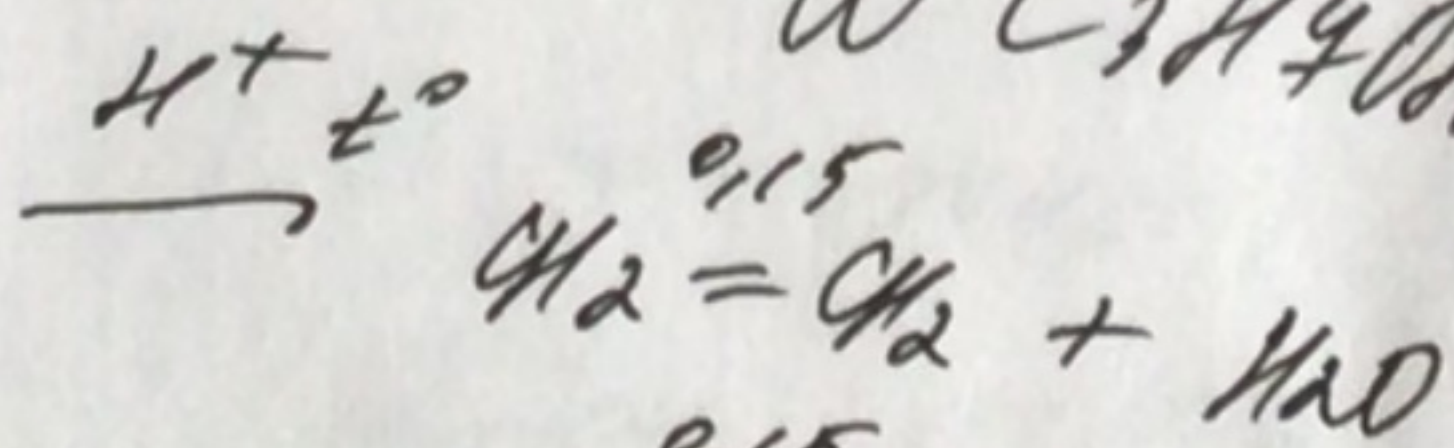 и C3H7O
H+ t°
0,15
CH2 = CH2 + H2O
0,15